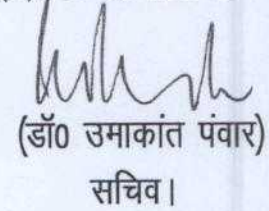 (डॉ0 उमाकांत पंवार)
सचिव।